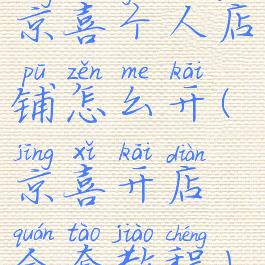 京喜个人店
pū zěn me kāi
铺怎么开(
jīng xǐ kāi diàn
京喜开店
quán tào jiào chéng
全套教程)